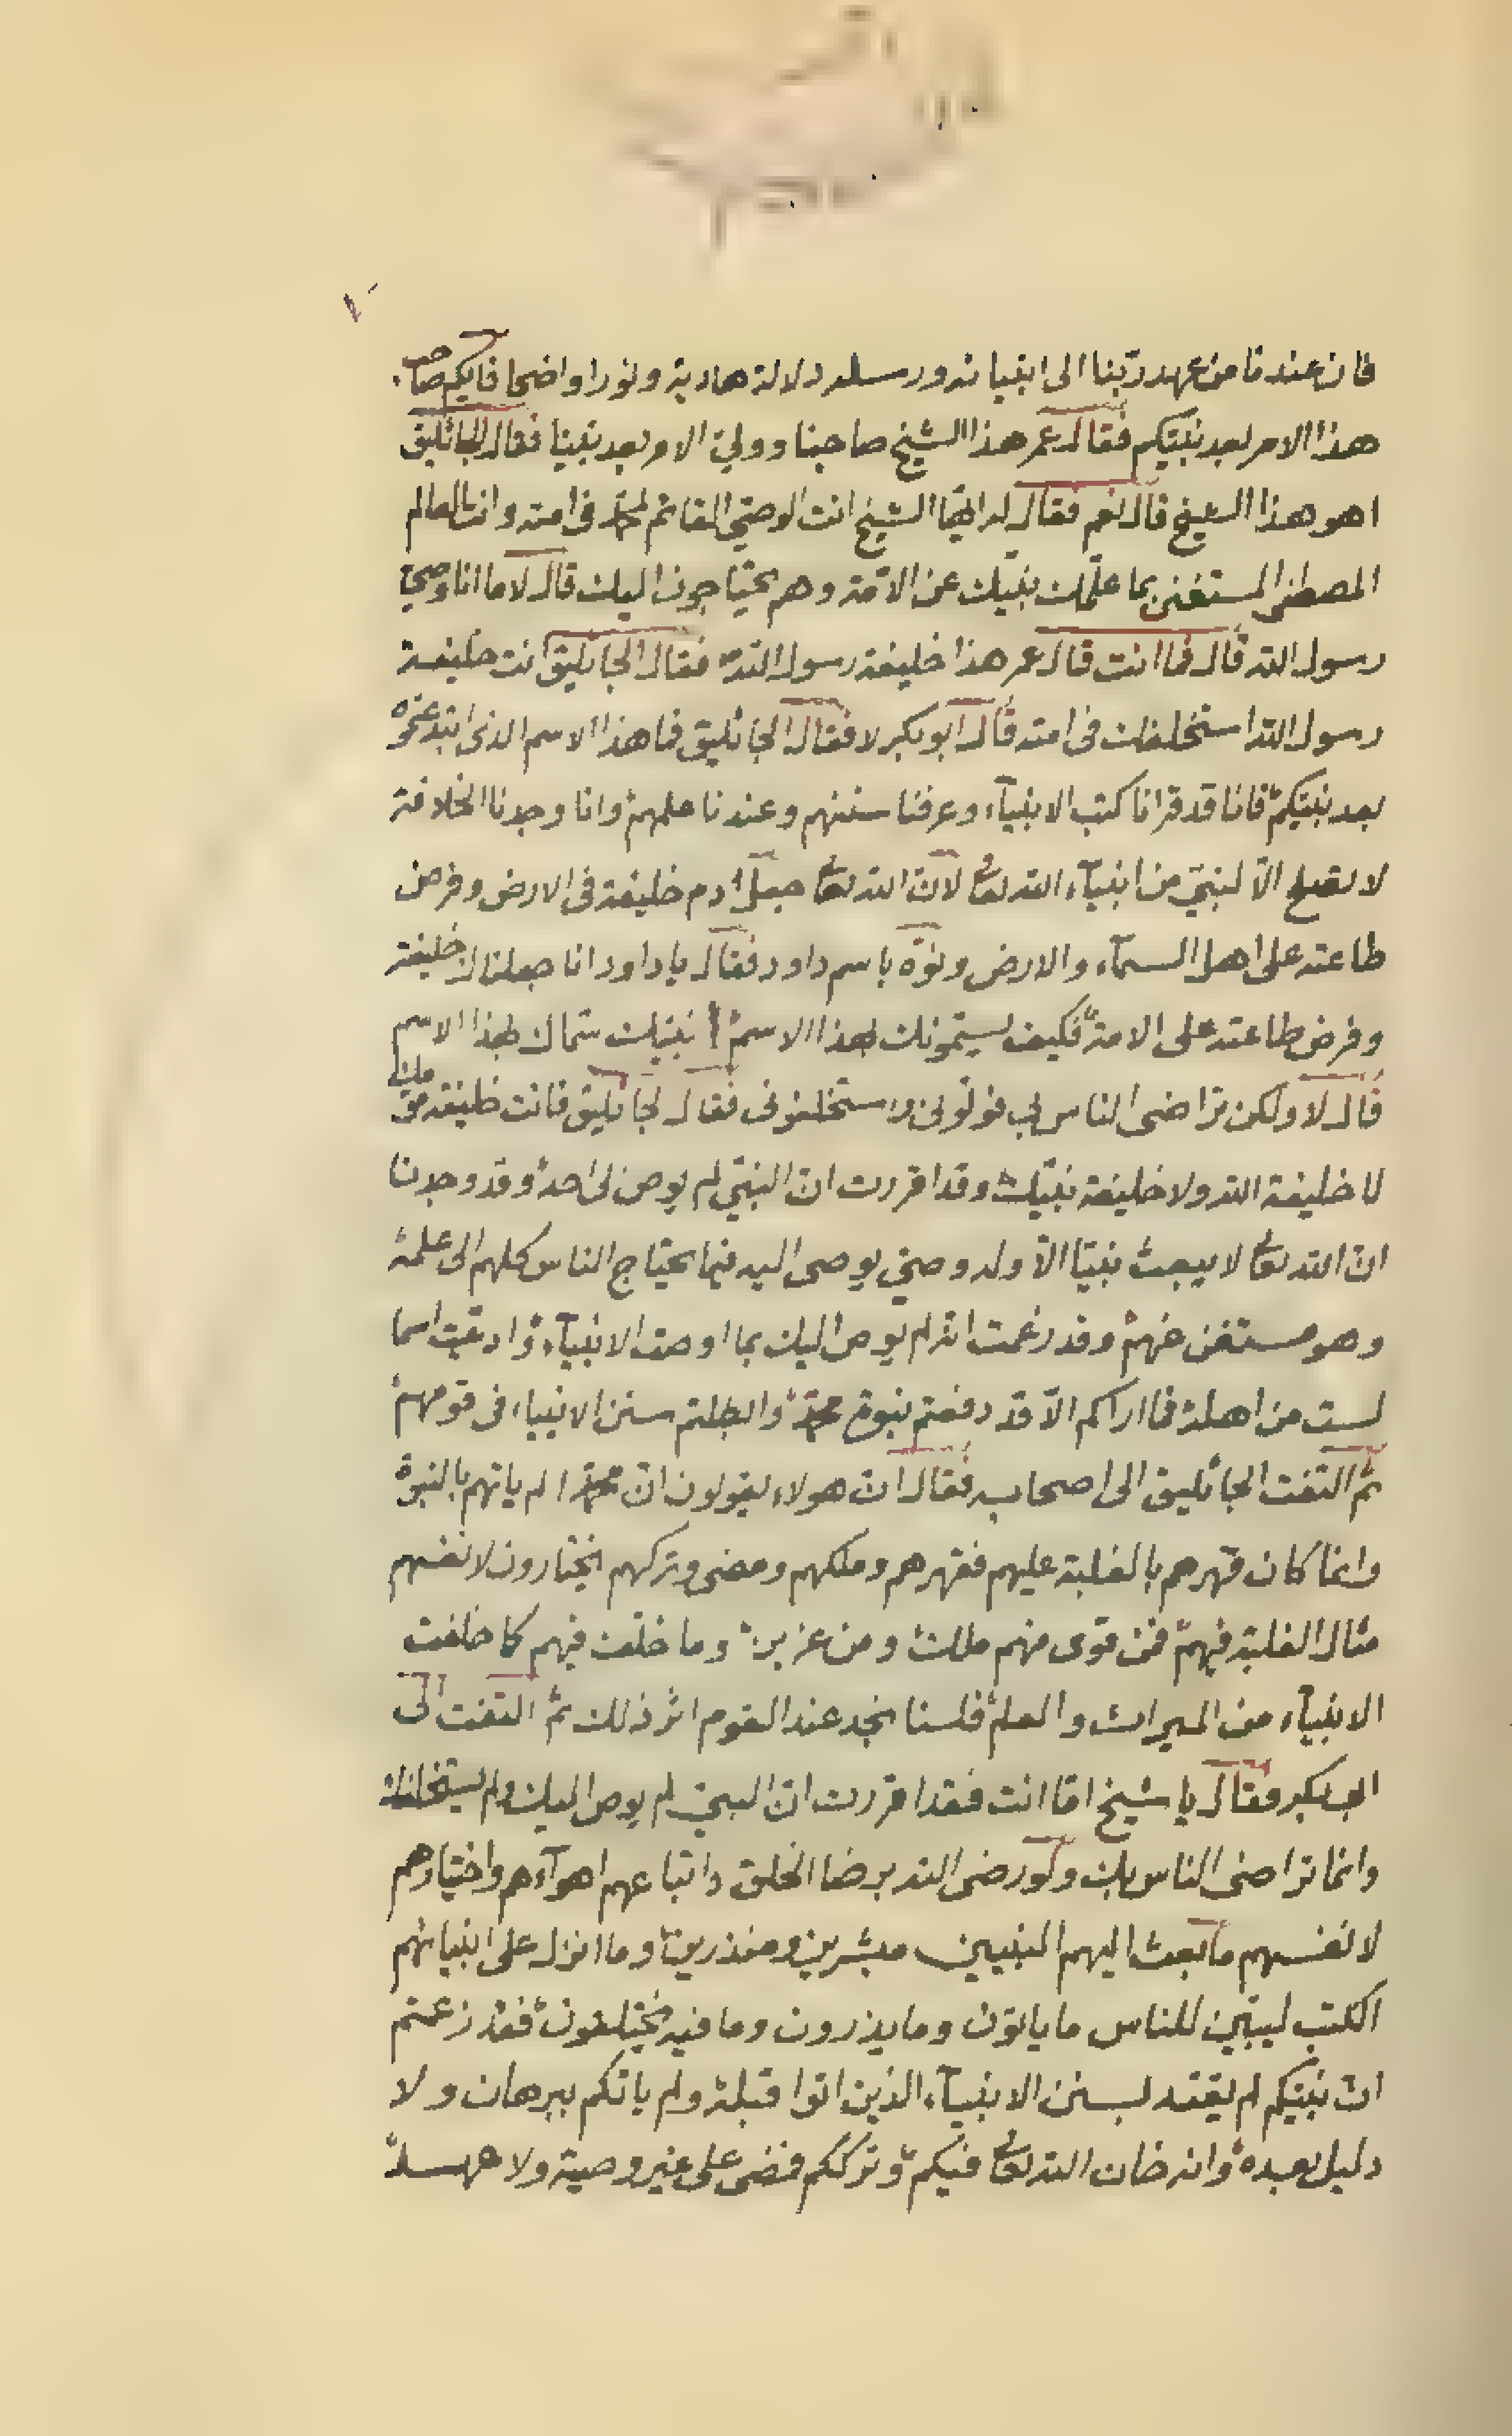 فان عندنا من عهد ربّنا الى انبيائه ورسله دلالة هادية ونورا واضحا فايكم صاحب
هذا الامر بعد نبيّكم فقال عمر هذا الشيخ صاحبنا وولىّ الامر بعد نبيّنا فقال الجاثليق
اهو هذا الشيخ قال نعم فقال له ايّها الشيخ انت الوصىّ القائم لمحمّد فى امته وانت العالم
المستغنى بما علّمك نبيّك عن الامّة وهم يحتاجون اليك قال لا ما انا وصىّ
رسول الله قال فما انت قال عمر هذا خليفة رسول الله فقال الجاثليق انت خليفة
رسول الله استخلفك فى امته قال ابو بكر لا فقال الجاثليق فما هذا الاسم الذى ابتدعتموه
بعد نبيّكم فانا قد قرانا كتب الانبيآء وعرفنا سننهم وعندنا علمهم وانا وجدنا الخلافة
لا تصلح الّا لنبىّ من انبيآء الله تعالى لانّ الله تعالى جعل ادم خليفة فى الارض وفرض
طاعته على اهل السمآء والارض ونوّه باسم داود فقال يا داود انا جعلناك خليفة
وفرض طاعته على الامة فكيف تسمّيت بهذا الاسم نبيّك سمّاك بهذا الاسم
قال لا ولكن تراضى الناس بى فولّونى واستخلفونى فقال الجاثليق فانت خليفة قومك
لا خليفة الله ولا خليفة نبيّك وقد اقررت انّ النبىّ لم يوص الى احد وقد وجدنا
انّ الله تعالى لا يبعث نبيّا الّا وله وصىّ يوصى اليه فيما يحتاج الناس كلهم الى علمه
وهو مستغن عنهم وقد زعمت انه لم يوص اليك بما اوصت الانبيآء وادعيت اسما
لست من اهله فما اراكم الّا قد دفعتم نبوة محمّد وابطلتم سنن الانبياء فى قومهم
ثمّ التفت الجاثليق الى اصحابه فقال انّ هولاء يقولون انّ محمّدا لم ياتهم بالنبوة
وانما كان قهرهم بالغلبة عليهم فقهرهم وملكهم ومضى وتركهم يختارون لانفسهم
مثال الغلبة فيهم فمن قوى منهم ملك ومن عزّ بزّ وما خلّف فيهم كما خلفت
الانبيآء من الميراث والعلم فلسنا نجد عند القوم اثر ذلك ثمّ التفت الى
ابى بكر فقال يا شيخ امّا انت فقد اقررت انّ النبىّ لم يوص اليك ولم يستخلفك
وانما تراضى الناس بك ولو رضى الله برضا الخلق واتباعهم اهوآءهم واختيارهم
لانفسهم ما بعث اليهم النبيين مبشرين ومنذرين وما انزل على انبيائهم
الكتب ليبيّن للناس ما ياتون وما يذرون وما فيه يختلفون فقد زعمتم
انّ نبيّكم لم يقتد بسنن الانبيآء الذين اتوا قبله ولم ياتكم ببرهان ولا
دليل بعده وانه خان الله تعالى فيكم وترككم فمضى على غير وصية ولا عهد